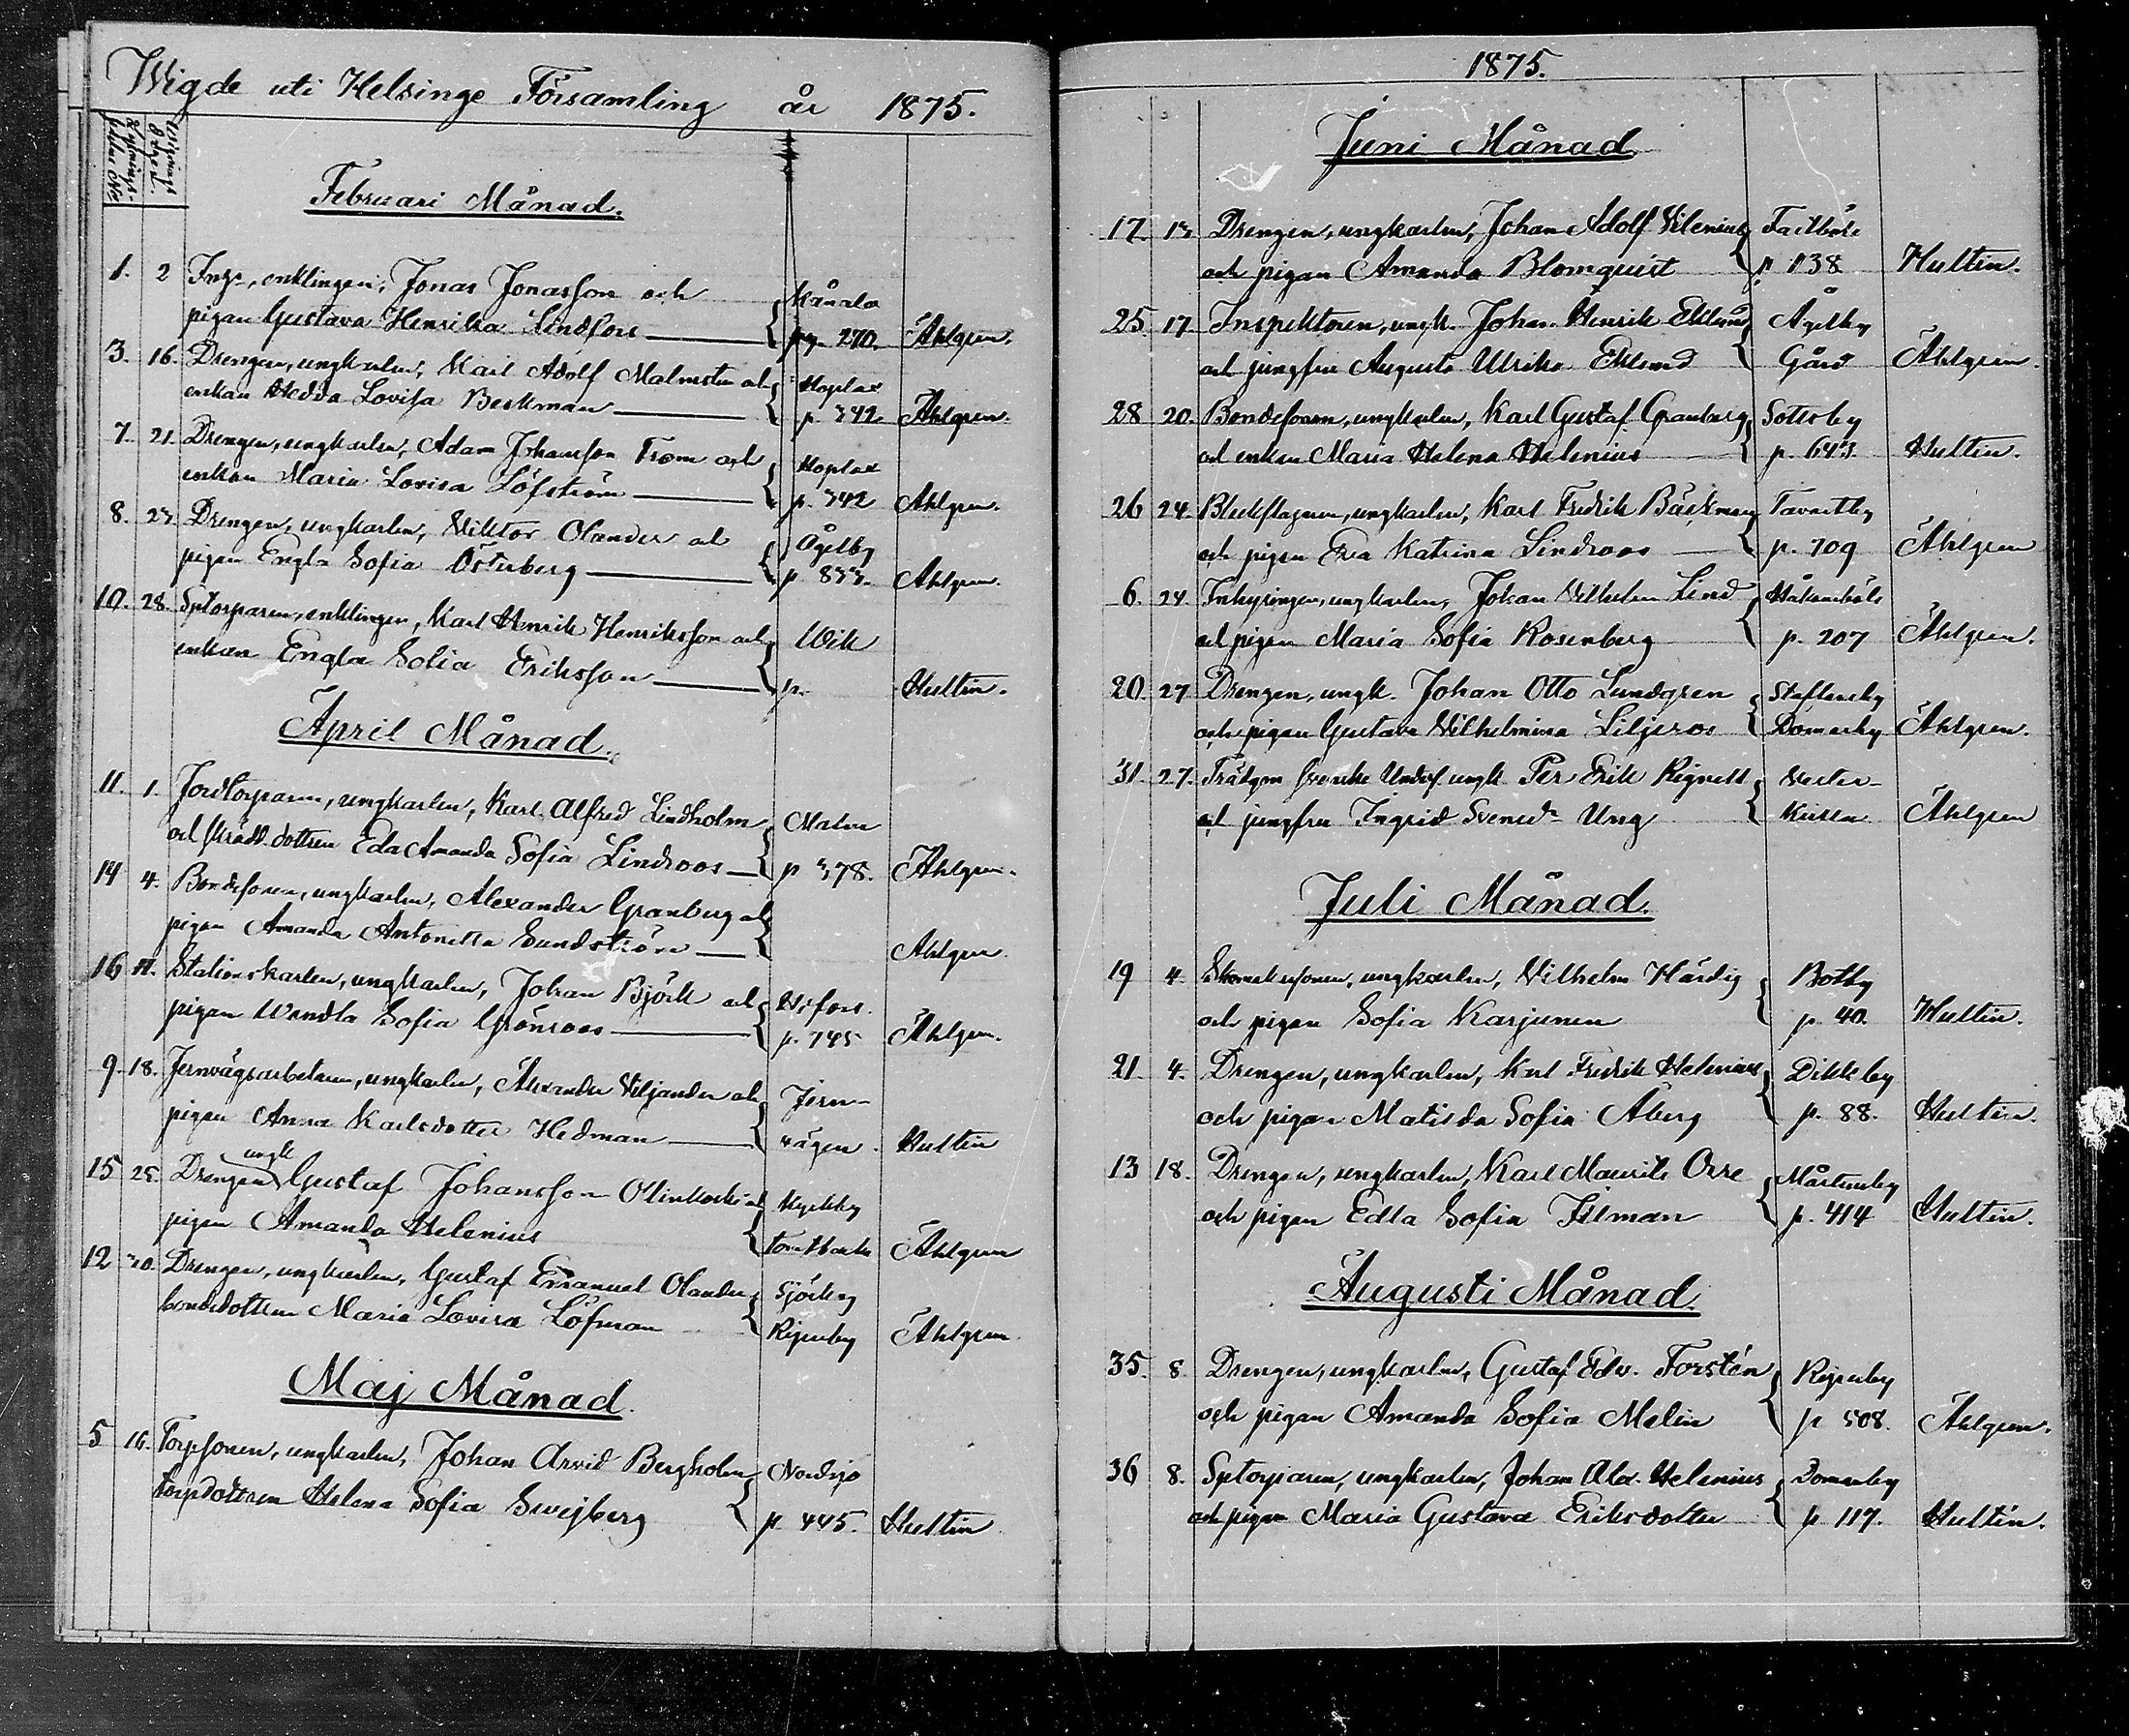 Wigde uti Helsinge Församling år 1875.
Lysnings-
bokens No
Wignings
dagen.
Februari Månad.
1. 2 Inge, enklingen, Jonas Jonasson och Kånala
pigan Gustava Henrika Lindfors pg. 270. Ahlgren.
3. 16. Drengen, ungkarlen, Karl Adolf Malmsten och Hoplax
enkan Hedda Lovisa Berkman p. 342 Ahlgren.
7. 21. Drengen, ungkarlen, Adam Johansson From och Hoplax
enkan Maria Lovisa Löfström p. 342 Ahlgren.
8. 23. Drengen, ungkarlen, Viktor Olander och Ågelby
pigan Engla Sofia Österberg p. 833. Ahlgren.
10. 28. Sptorparen, enklingen, Karl Henrik Henriksson och Wik
enkan Engla Sofia Eriksson p. Hultin.
April Månad.
11. 1. Jordtorparen, ungkarlen, Karl Alfred Lindholm Malm
och skrädd.dottren Eda Amanda Sofia Lindroos p 378. Ahlgren.
14 4. Bondesonen, ungkarlen, Alexander Granberg och
pigan Amanda Antonetta Sundström Ahlgren.
16 11. Stationskarlen, ungkarlen, Johan Björk och H:fors.
pigan Wendla Sofia Grönroos p. 745 Ahlgren.
9. 18. Jernvägsarbetaren, ungkarlen, Alexander Viljander och Jern-
pigan Anna Karlsdotter Hedman vägen. Hultin
ungk
15 25. Drengen Gustaf Johansson Olinkoski och Kyrkby
pigan Amanda Helenius Ahlgren
12 30. Drengen, ungkarlen, Gustaf Emanuel Olander Sjöskog
bondedottren Maria Lovisa Löfman Ripuby Ahlgren
Maj Månad.
5 16. Torpsonen, ungkarlen, Johan Arvid Bergholm Nordsjö
torpdottren Helena Sofia Sweiberg p 445. Hultin
1875.
Juni Månad
17. 13. Drengen, ungkarlen, Johan Adolf Vilenius Fastböle
och pigan Amanda Blomquist p 138 Hultin.
25. 17 Inspektoren, ungk. Johan Henrik Eklund Ågelby
och jungfru Augusta Ulrika Eklund Gård Ahlgren.
28 20. Bondesonen, ungkarlen, Karl Gustaf Granberg Sottsby
och enkan Maria Helena Helenius p. 643 Hultin.
26 24. Bleckslagaren, ungkarlen, Karl Fredrik Bäckman Tavastby
och pigan Eva Katrina Lindroos p. 709 Ahlgren
6. 24. Inhysingen, ungkarlen, Johan Vilhelm Lind Håkansböle
och pigan Maria Sofia Rosenberg p. 207 Ahlgren.
20. 27. Drengen, ungk. Johan Otto Lundgren Staffansby
och pigan Gustava Vilhelmina Liljeros Domarby Ahlgren.
31. 27. Trädgm svenske Unders. ungk. Per Erik Rignell Vester-
och jungfru Ingrid Svensd:r Ung Kulla Ahlgren
Juli Månad.
19 4. Skomakaresonen, ungkarlen, Vilhelm Härdig Botby
och pigan Sofia Karjunen p. 40. Hultin.
21 4. Drengen, ungkarlen, Karl Fredrik Helenius Dikkby
och pigan Matilda Sofia Åberg p. 88. Hultin.
13 18. Drengen, ungkarlen, Karl Maurits Orre Mårtensby
och pigan Edla Sofia Filman p. 414 Hultin.
Augusti Månad.
35. 8 Drengen, ungkarlen, Gustaf Edv. Forstén Ripuby
och pigan Amanda Sofia Malin p 508. Ahlgren.
36 8. Sptorparen, ungkarlen, Johan Alex. Helenius Domarby
och pigan Maria Gustava Eriksdotter p 117. Hultin.